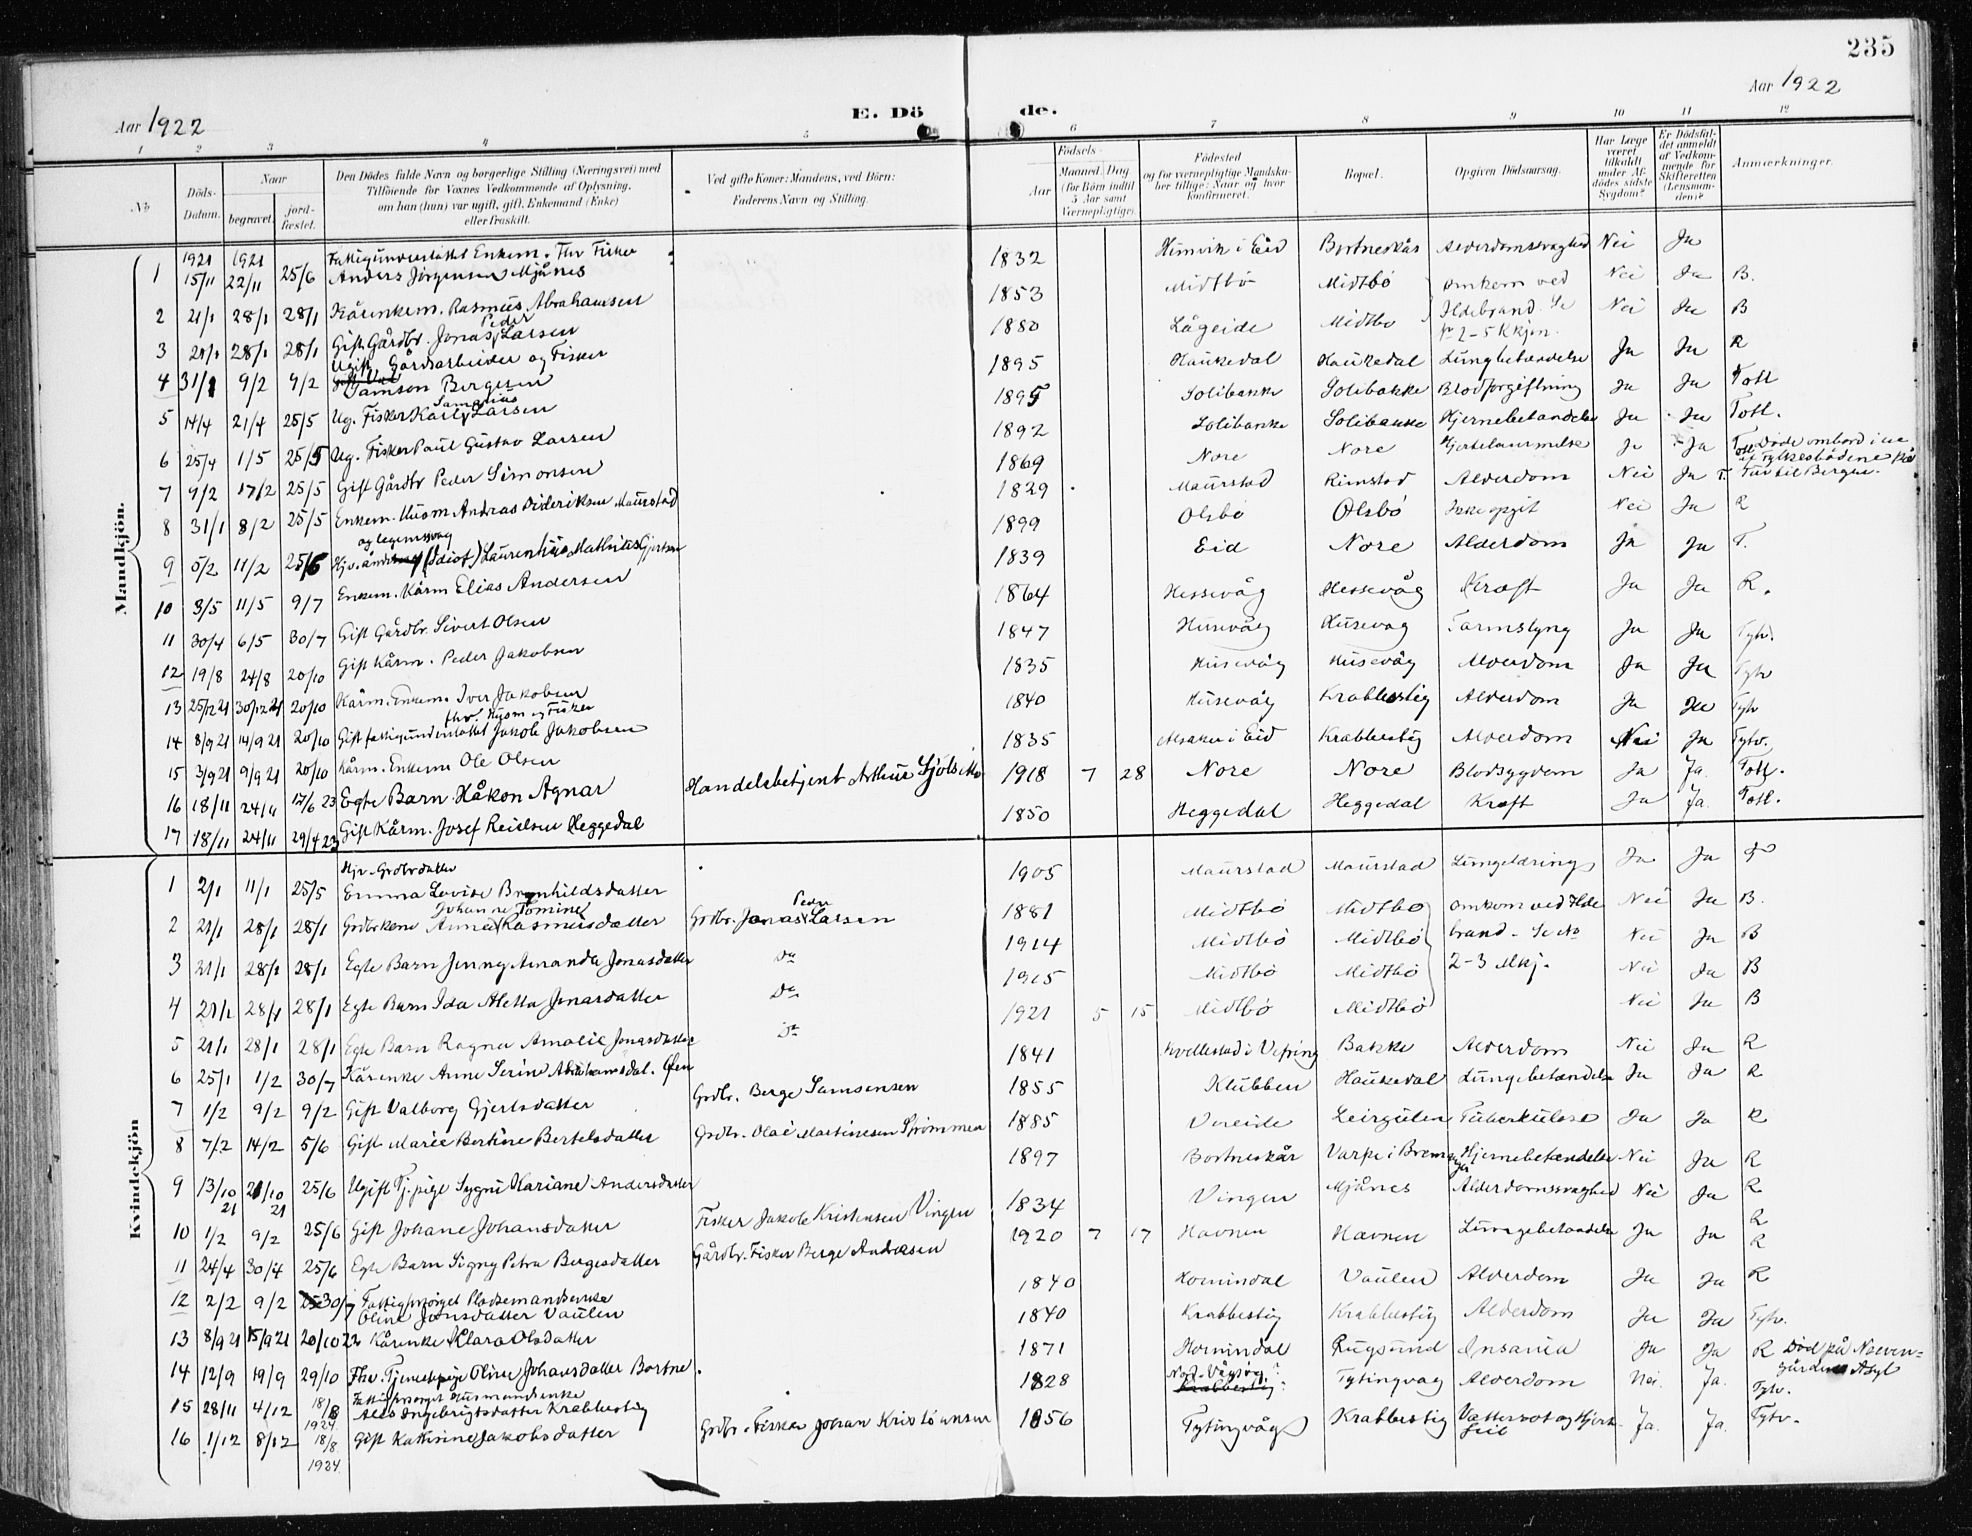 235
Aar 1922
E. Döde.
Aar 1922
1 2 3 4 5 6 7 8 9 10 11 12
No
Döds-Datum.
Naar begravet. jord-fæstet.
Den Dödes fulde Navn og borgerlige Stilling (Næringsvei) med Tilföiende for Voxnes Vedkommende af Oplysning, om han (hun) var ugift, gift, Enkemand (Enke) eller fraskilt.
Ved gifte Koner: Mandens, ved Börn: Faderens Navn og Stilling.
Födsels- Aar Maaned. Dag. (for Börn indtil 5 Aar samt Værnepligtige).
Födested og for værnepligtige Mandskaber tillige: Naar og hvor konfirmeret.
Bopæl.
Opgiven Dödsaarsag.
Har Læge været tilkaldt under Afdödes sidste Sygdom?
Er Dödsfaldet anmeldt af Vedkommende for Skifteretten (Lensmanden)?
Anmærkninger.
Mandkjön.
1921 1921 Fattigunderstöttet Enkem. Fhv Fisker
1 15/11 22/11 25/6 Anders Jörgensen Mjånes 1832 Himvik i Eid Bortneskår Alderdomssvaghed Nei Ja
2 21/1 28/1 28/1 Kårenkem. Rasmus Abrahamsen 1853 Midtbö Midtbö omkom ved Nei Ja B.
3 21/1 28/1 28/1 Gift Gårdbr. Jonas Peder Larsen 1880 Lågeide Midtbö Ildebrand. Se No 2-5 Kkjön. Nei Ja B
4 31/1 9/2 9/2 Ugift Gårdsarbeider og Fisker Samson Bergesen 1895 Haukedal Haukedal Lungbetændelse Ja Ja R
5 14/4 21/4 25/5 Ug. Fisker Karl Samuelius Larsen 1895 Solibakke Solibakke Blodforgiftning Ja Ja Totl
6 25/4 1/5 25/5 Ug. Fisker Paul Gustav Larsen 1892 Solibakke Solibakke Hjernebetændelse Ja Ja Totl.
7 9/2 17/2 25/5 Gift Gårdbr Peder Simonsen 1869 Nore Nore Hjertelammelse Ja Ja Totl. Döde ombord i en af Fylkesbådene på Tur til Bergen.
8 31/1 8/2 25/5 Enkem. Husm Andreas Dideriksen Maurstad 1829 Maurstad Rimstad Alderdom Nei Ja T.
9 5/2 11/2 25/6 Hjv. ånds og legemssvag (Idiot) Laurentius Mathias Gjertsen 1899 Olsbö Olsbö Ikke opgit Nei Ja R
10 3/5 11/5 9/7 Enkem. Kårm Elias Andersen 1839 Eid Nore Alderdom Ja Ja T.
11 30/4 6/5 30/7 Gift Gårdbr. Sivert Olsen 1864 Hessevåg Hessevåg Kræft Ja Ja R.
12 19/8 24/8 20/10 Gift Kårm. Peder Jakobsen 1847 Husevåg Husevåg Tarmslyng Ja Ja Tytv.
13 25/12 21 30/12 21 20/10 Kårm. Enkem. Iver Jakobsen 1835 Husevåg Husevåg Alderdom Ja Ja Tytv
14 8/9 21 14/9 21 20/10 Gift fattigunderstöttet fhv. Husm og Fisker Jakob Jakobsen 1840 Husevåg Krabbestig Alderdom Ja Ja Tytv
15 3/9 21 9/9 21 20/10 Kårm. Enkem Ole Olsen 1835 Alsaker i Eid Krabbestig Alderdom Nei Ja Tytv.
16 18/11 24/11 17/6 23 Egte Barn Håkon Agnar Handelsbetjent Arthur Sjöls 1918 7 28 Nore Nore Blodsygdom Ja Ja. Totl.
17 18/11 24/11 29/4 23 Gift Kårm. Josef Reielsen Heggedal 1850 Heggedal Heggedal Kræft Ja Ja. Totl.
Kvindekjön
1 2/1 11/1 25/5 Hjv. Grdbrdatter Emma Lovise Brynhildsdatter 1905 Maurstad Maurstad Lungeldring Ja Ja T
2 21/1 28/1 28/1 Grdbrkone Anne Johanne Tomine Rasmusdatter Grdbr. Jonas Peder Larsen 1881 Midtbö Midtbö omkom ved Ilde Nei Ja B.
3 21/1 28/1 28/1 Egte Barn Jenny Amanda Jonasdatter Do 1914 Midtbö Midtbö brand. Se No Nei Ja B
4 21/1 28/1 28/1 Egte Barn Ida Aletta Jonasdatter Do 1915 Midtbö Midtbö 2-3 Mkj. Nei Ja B
5 21/1 28/1 28/1 Egte Barn Ragna Amalie Jonasdatter Do 1921 5 15 Midtbö Midtbö Nei Ja B
6 25/1 1/2 30/7 Kårenke Anne Serine Abrahamsdat. Öien 1841 Kvellestad i Vefring Bakke Alderdom Nei Ja R
7 1/2 9/2 9/2 Gift Valborg Gjertsdatter Grdbr. Berge Samsonsen 1855 Klubben Haukedal Lungebetændelse Ja Ja R
8 7/2 14/2 5/6 Gift Marie Bertine Bertelsdatter Grdbr. Olai Martinesen Strömmen 1885 Vereide Leirgulen Tuberkulose Ja Ja R
9 13/10 21 21/10 21 25/6 Ugift Tj.pige Sygni Kariane Andersdatter 1897 Bortneskår Varpe i Bremanger Hjernebetændelse Nei Ja R
10 1/2 9/2 25/6 Gift Johane Johansdatter Fisker Jakob Kristensen Vingen 1834 Vingen Mjånes Alderdomssvaghed Nei Ja R
11 24/4 30/4 25/6 Egte Barn Signy Petra Bergesdatter Gårdbr. Fisker Berge Andresen 1920 7 17 Havnen Havnen Lungebetændelse Ja Ja R R
12 2/2 9/2 30/7 Fattigforsörget Pladsemandsenke Oline Jonsdatter Vaulen 1840 Hornindal Vaulen Alderdom Ja Ja R
13 8/9 21 15/9 21 20/10 22 Kårenke Klara Olsdatter 1840 Krabbestig Krabbestig Alderdom Ja Ja Tytv.
14 12/9 19/9 29/10 Fhv. Tjenestpige Oline Johansdatter Bortne 1871 Hornindal Rugsund Insania Ja Ja R Död på Neevengårdens Asyl
15 28/11 4/12 18/8 1924 Fattigforsörget Husmandsenke Ales Ingebrigtsdatter Krabbestig 1828 Nord-Vågsöy? Tytingvåg Alderdom Nei. Ja. Tytv.
16 1/12 8/12 18/8 1924 Gift Kathrine Jakobsdatter Grdbr. Fisker Johan Kristiansen 1856 Tytingvåg Krabbestig Vattersot og Hjertefeil Ja. Ja. Tytv.